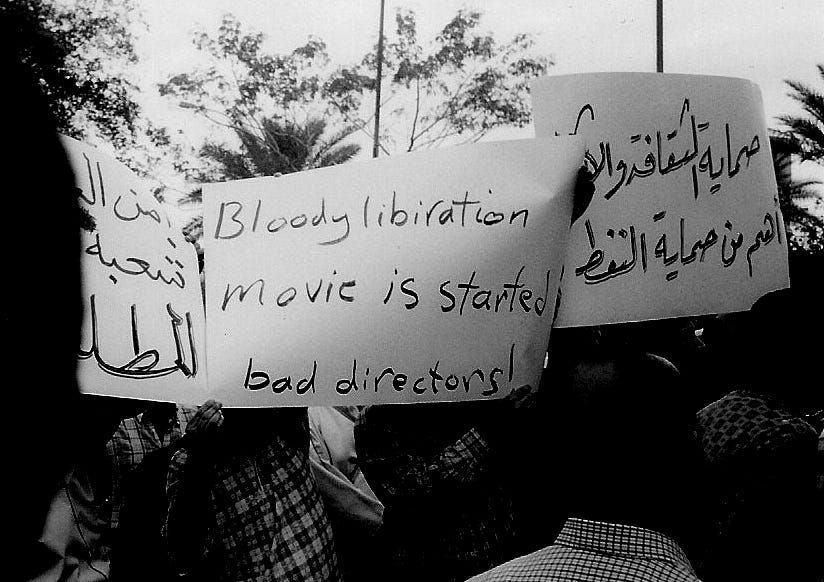 Bloody libiration
movie is started!
bad directors!
حماية الثقافة والا
أهم من حماية النفط
من ال
شعبه